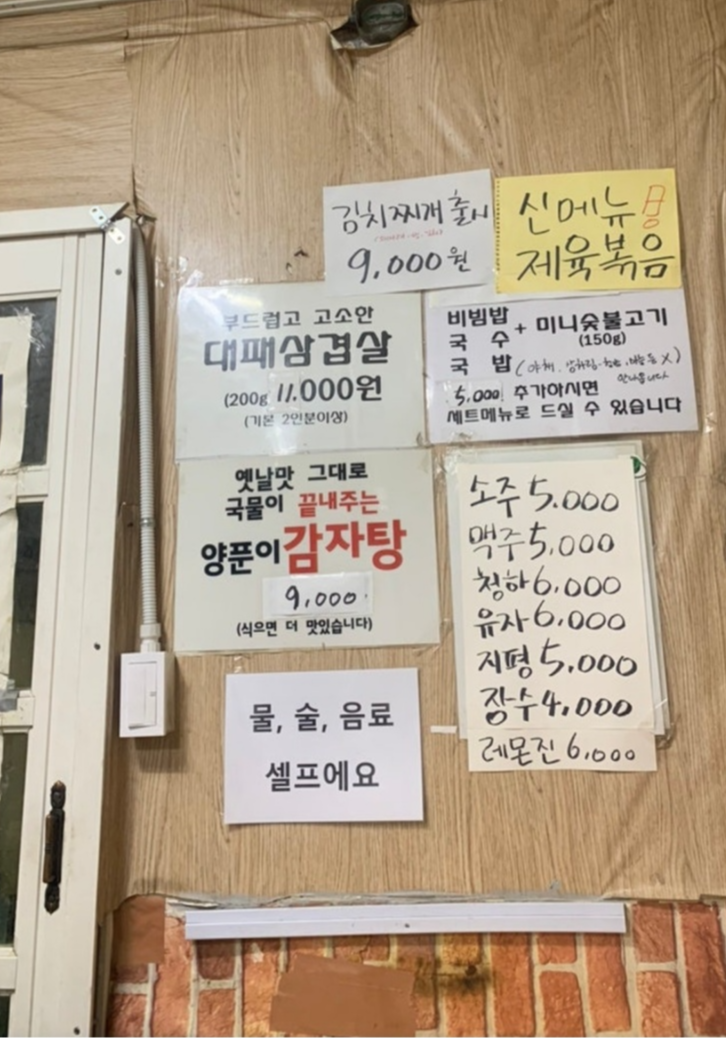 김치찌개 출시
9,000원
신메뉴
제육볶음
부드럽고 고소한
대패삼겹살
(200g 11.000원
(기본 2인분이상)
비빔밥
국 수 + 미니숯불고기
(150g)
국 밥
5,000 추가하시면
세트메뉴로 드실 수 있습니다
옛날맛 그대로
국물이 끝내주는
양푼이감자탕
9,000.
(식으면 더 맛있습니다)
소주 5.000
맥주 5,000
청하 6,000
유자 6.000
지평 5,000
장수 4,000
레몬진 6,000
물, 술, 음료
셀프에요